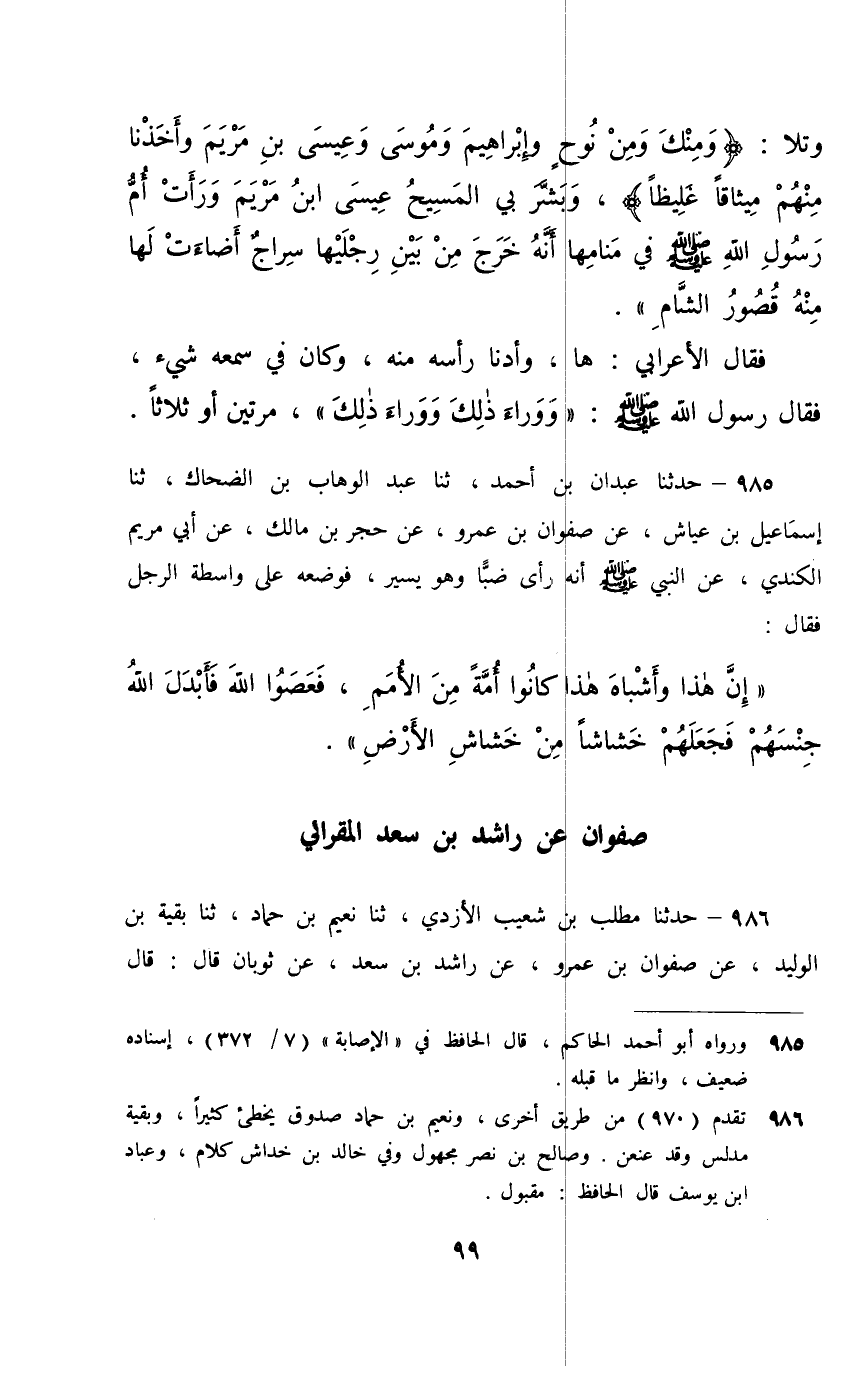 وتلا : ﴿وَمِنْكَ وَمِنْ نُوحٍ وإِبْراهِيمَ وَمُوسَى وَعِيسَى بنِ مَرْيَمَ وأَخَذْنا
مِنْهُمْ مِيثاقاً غَلِيظاً﴾ ، وَبَشَّرَ بي المَسِيحُ عِيسَى ابنُ مَرْيَمَ وَرَأَتْ أُمُّ
رَسُولِ اللهِ ﷺ في مَنامِها أَنَّهُ خَرَجَ مِنْ بَيْنِ رِجْلَيْها سِراجٌ أَضاءَتْ لَها
مِنْهُ قُصُورُ الشَّامِ » .
فقال الأعرابي : ها ، وأدنا رأسه منه ، وكان في سمعه شيء ،
فقال رسول الله ﷺ : « وَوَراءَ ذٰلِكَ وَوَراءَ ذٰلِكَ » ، مرتين أو ثلاثاً .
٩٨٥ – حدثنا عبدان بن أحمد ، ثنا عبد الوهاب بن الضحاك ، ثنا
إسمَاعيل بن عياش ، عن صفوان بن عمرو ، عن حجر بن مالك ، عن أبي مريم
الكندي ، عن النبي ﷺ أنه رأى ضبًّا وهو يسير ، فوضعه على واسطة الرجل
فقال :
« إِنَّ هٰذا وأَشْباهَ هٰذا كانُوا أُمَّةً مِنَ الأُمَمِ ، فَعَصَوُا اللهَ فَأَبْدَلَ اللهُ
جِنْسَهُمْ فَجَعَلَهُمْ خَشاشاً مِنْ خَشاشِ الأَرْضِ » .
صفوان عن راشد بن سعد المقرالي
٩٨٦ – حدثنا مطلب بن شعيب الأزدي ، ثنا نعيم بن حماد ، ثنا بقية بن
الوليد ، عن صفوان بن عمرو ، عن راشد بن سعد ، عن ثوبان قال : قال
٩٨٥ ورواه أبو أحمد الحاكم ، قال الحافظ في «الإصابة» (٧/ ٣٧٢) ، إسناده
ضعيف ، وانظر ما قبله .
٩٨٦ تقدم (٩٧٠) من طريق أخرى ، ونعيم بن حماد صدوق يخطئ كثيراً ، وبقية
مدلس وقد عنعن . وصالح بن نصر مجهول وفي خالد بن خداش كلام ، وعباد
ابن يوسف قال الحافظ : مقبول .
٩٩